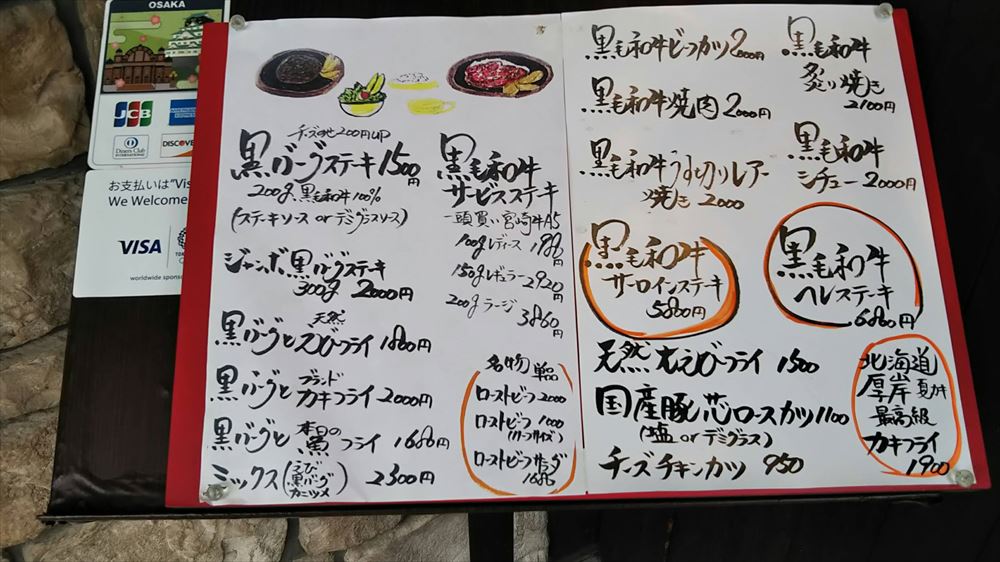 OSAKA
JCB
Diners Club
INTERNATIONAL
DISCOVER
お支払いは"Vis
We Welcome
VISA
worldwide sponso
チーズのせ200円UP
黒バーグステーキ 1500円
200g 黒毛和牛100%
(ステーキソース or デミグラスソース)
ジャンボ黒バーグステーキ
300g 2000円
天然
黒バーグとえびフライ 1800円
黒バーグと ブランド カキフライ 2000円
黒バーグと 本日の魚 フライ 1680円
ミックス(えび 黒バーグ カニツメ) 2300円
黒毛和牛
サービスステーキ
一頭買い宮崎牛A5
100gレディース 1980円
150gレギュラー 2920円
200gラージ 3860円
名物 単品
ローストビーフ 2000
ローストビーフ 1000
(ハーフサイズ)
ローストビーフサラダ
1680
黒毛和牛ビーフカツ 2000円
黒毛和牛焼肉 2000円
黒毛和牛うす切りレアー
焼き 2000
黒毛和牛
サーロインステーキ
5800円
黒毛和牛
炙り焼き
2100円
黒毛和牛
シチュー 2000円
黒毛和牛
ヘレステーキ
6800円
天然 大えびフライ 1500
国産豚 芯ロースカツ 1100
(塩 or デミグラス)
チーズチキンカツ 950
北海道
厚岸 夏カキ
最高級
カキフライ
1900